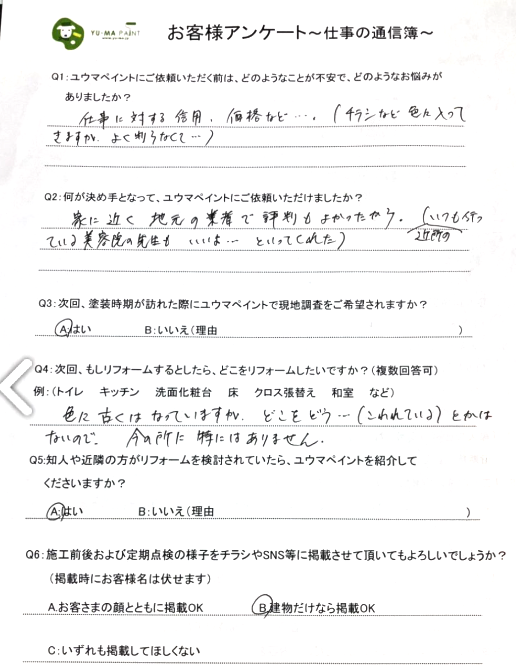 YU-MA PAINT
お客様アンケート～仕事の通信簿～
Q1:ユウマペイントにご依頼いただく前は、どのようなことが不安で、どのようなお悩みが
ありましたか?
仕事に対する信用、価格など…。(チラシなど色々入って
きますが、よく判らなくて…)
Q2:何が決め手となって、ユウマペイントにご依頼いただけましたか?
家に近く地元の業者で評判もよかったから。(いつも行っ
ている美容院の先生もいいよ…といってくれた)
近所の
Q3:次回、塗装時期が訪れた際にユウマペイントで現地調査をご希望されますか?
A:はい B:いいえ(理由 )
Q4:次回、もしリフォームするとしたら、どこをリフォームしたいですか?(複数回答可)
例:(トイレ キッチン 洗面化粧台 床 クロス張替え 和室 など)
色々古くはなっていますが、どこをどう…(こわれている)とかは
ないので、今の所に特にはありません。
Q5:知人や近隣の方がリフォームを検討されていたら、ユウマペイントを紹介して
くださいますか?
A:はい B:いいえ(理由 )
Q6:施工前後および定期点検の様子をチラシやSNS等に掲載させて頂いてもよろしいでしょうか?
(掲載時にお客様名は伏せます)
A.お客さまの顔とともに掲載OK B.建物だけなら掲載OK
C:いずれも掲載してほしくない